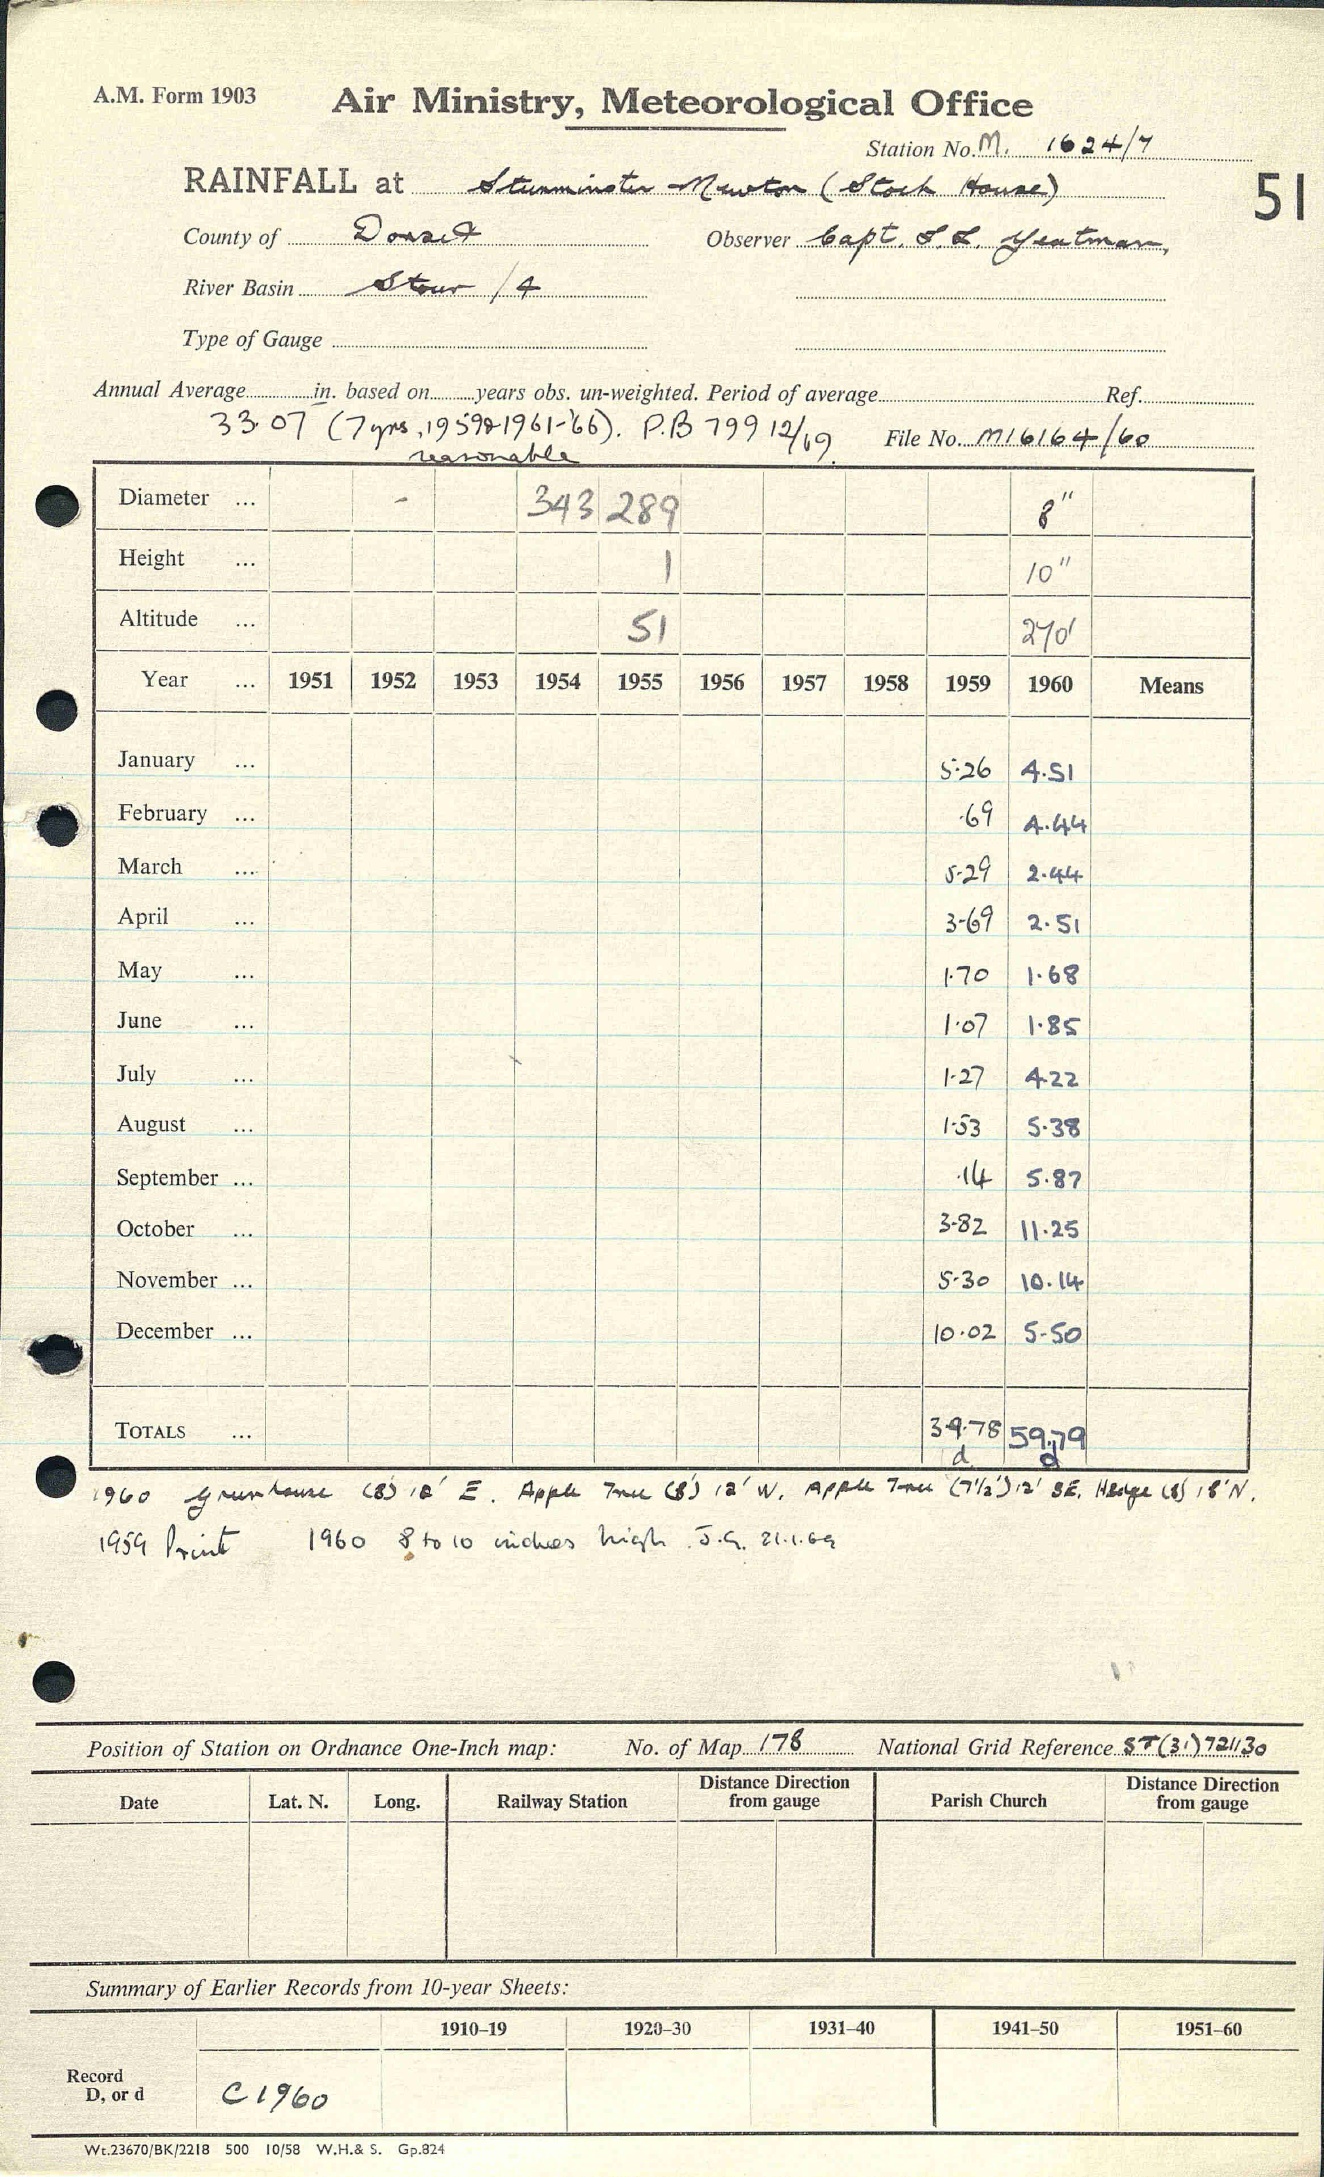 A.M. Form 1903 Air Ministry, Meteorological Office
Station No. M. 1624/7
RAINFALL at Sturminster Newton (Stock House)
51
County of Dorset Observer Capt. Yeatman,
River Basin Stour /4
Type of Gauge
Annual Average in. based on years obs. un-weighted. Period of average Ref.
33.07 (7 yrs, 1959 & 1961-'66). P.B 799 12/69 File No. M16164/60
reasonable
Diameter ... - 343 289 8"
Height ... 1 10"
Altitude ... 51 270'
Year ... 1951 1952 1953 1954 1955 1956 1957 1958 1959 1960 Means
January ... 5.26 4.51
February ... .69 4.44
March ... 5.29 2.44
April ... 3.69 2.51
May ... 1.70 1.68
June ... 1.07 1.85
July ... 1.27 4.22
August ... 1.53 5.38
September ... .14 5.87
October ... 3.82 11.25
November ... 5.30 10.14
December ... 10.02 5.50
TOTALS ... 39.78 59.79
d d
1960 Greenhouse (8') E. Apple Tree (8') 12' W. Apple Tree (7½') 12' SE. Hedge (8') 18' N.
1959 Print 1960 8 to 10 inches high J.G. 21.1.69
Position of Station on Ordnance One-Inch map: No. of Map 178 National Grid Reference ST(31)721130
Date Lat. N. Long. Railway Station Distance Direction from gauge Parish Church Distance Direction from gauge
Summary of Earlier Records from 10-year Sheets:
1910–19 1920–30 1931–40 1941–50 1951–60
Record
D, or d C 1960
Wt.23670/BK/2218 500 10/58 W.H.& S. Gp.824